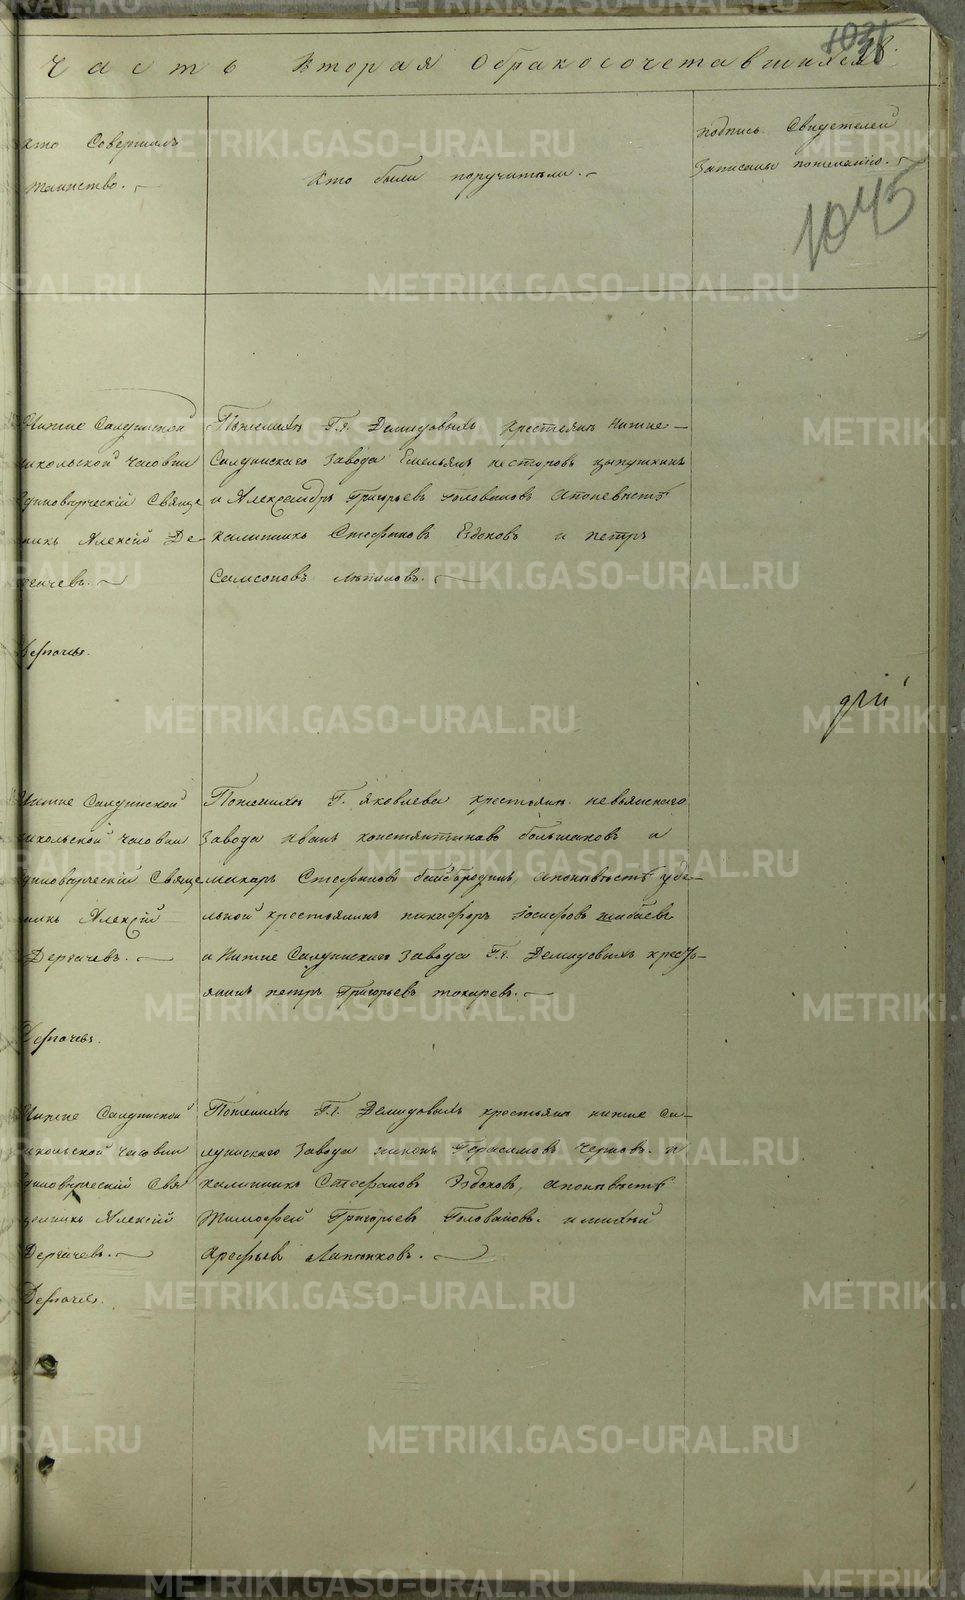 Часть вторая о бракосочетавшихся
38.
Кто Совершалъ
таинство.
Кто были поручители.
подпись Свидетелей
Записаны по желанію.
1045
Нижне Салдинской
никольской часовни
Единоверческій Свяще
никъ Алексій Де-
ргачевъ.
Пожениху Г.г. Демидовыхъ крестьяне Нижне-
Салдинскаго завода Емельянъ нестеровъ
и Александръ Григорьевъ Головановъ апоневѣстѣ
калинникъ Стефановъ Ездоковъ и петръ
Самсоновъ
Дергачев.
Нижне Салдинской
никольской часовни
Единоверческій Свяще
никъ Алексій
Дергачевъ.
Пожениху Г. Яковлева крестьяне невьянскаго
завода иванъ константиновъ большаковъ и
макаръ Стефановъ апоневѣстѣ уде-
льной крестьянинъ никифоръ Іосифовъ
и Нижне Салдинскаго завода Г.г. Демидовыхъ кресть-
янинъ петръ Григорьевъ токаревъ.
Дергачевъ.
Нижне Салдинской
никольской часовни
единоверческій Свя
щенникъ Алексій
Дергачевъ.
Пожениху Г.г. Демидовыхъ крестьяне нижне са-
лдинскаго завода никонъ Герасимовъ Черновъ и
калинникъ Стефановъ Ездоковъ, апоневѣстѣ
Тимофей Григорьевъ Головановъ. и
Арефьев Лапенковъ.
Дергачев.
METRIKI.GASO-URAL.RU